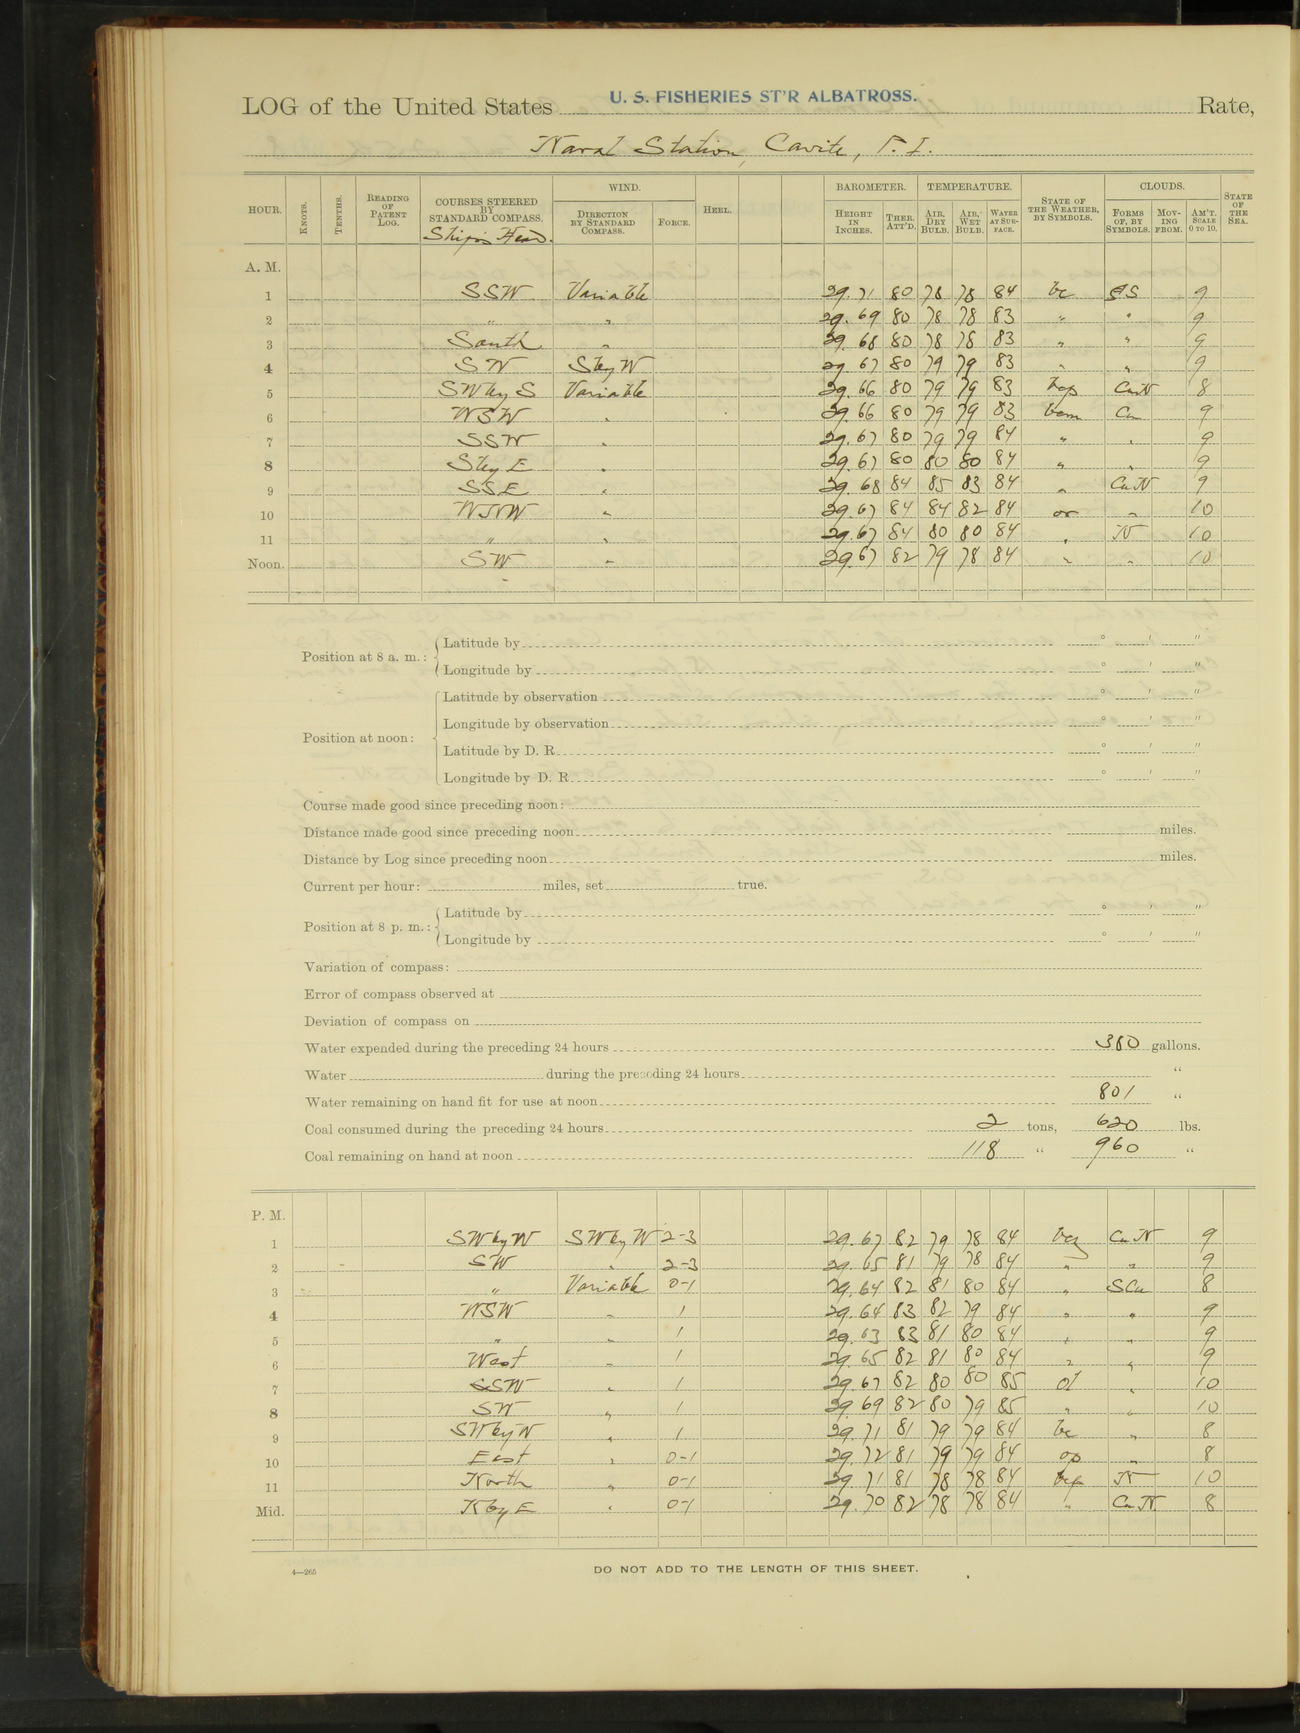 LOG of the United States U. S. FISHERIES ST'R ALBATROSS. Rate,
Naval Station, Cavite, P. I.
HOUR. KNOTS. TENTHS. READING OF PATENT LOG. COURSES STEERED BY STANDARD COMPASS. Ship's Head. WIND. DIRECTION BY STANDARD COMPASS. FORCE. HEEL. BAROMETER. HEIGHT IN INCHES. THER. ATT'D. TEMPERATURE. AIR, DRY BULB. AIR, WET BULB. WATER AT SURFACE. STATE OF THE WEATHER, BY SYMBOLS. CLOUDS. FORMS OF, BY SYMBOLS. MOVING FROM. AM'T. SCALE 0 TO 10. STATE OF THE SEA.
A. M.
1 SSW Variable 29.71 80 78 78 84 bc S 9
2 " " 29.69 80 78 78 83 " " 9
3 South " 29.68 80 78 78 83 " " 9
4 SW SbyW 29.67 80 79 79 83 " " 9
5 SWbyS Variable 29.66 80 79 79 83 bcp CuN 8
6 WSW " 29.66 80 79 79 83 bcm Cu 9
7 SSW " 29.67 80 79 79 84 " " 9
8 SbyE " 29.67 80 80 80 84 " " 9
9 SSE " 29.68 84 85 83 84 " CuN 9
10 WNW " 29.67 84 84 82 84 or " 10
11 " " 29.67 84 80 80 84 " N 10
Noon. SW " 29.67 82 79 78 84 " " 10
Position at 8 a. m.: Latitude by ° ′ ″
Longitude by ° ′ ″
Position at noon: Latitude by observation ° ′ ″
Longitude by observation ° ′ ″
Latitude by D. R. ° ′ ″
Longitude by D. R. ° ′ ″
Course made good since preceding noon:
Distance made good since preceding noon miles.
Distance by Log since preceding noon miles.
Current per hour: miles, set true.
Position at 8 p. m.: Latitude by ° ′ ″
Longitude by ° ′ ″
Variation of compass:
Error of compass observed at
Deviation of compass on
Water expended during the preceding 24 hours 380 gallons.
Water during the preceding 24 hours "
Water remaining on hand fit for use at noon 801 "
Coal consumed during the preceding 24 hours 2 tons, 620 lbs.
Coal remaining on hand at noon 118 " 960 "
P. M.
1 SWbyW SWbyW 2-3 29.67 82 79 78 84 bcq CuN 9
2 SW " 2-3 29.65 81 79 78 84 " " 9
3 " Variable 0-1 29.64 82 81 80 84 " SCu 8
4 WSW " 1 29.64 83 82 79 84 " " 9
5 " " 1 29.63 83 81 80 84 " " 9
6 West " 1 29.65 82 81 80 84 " " 9
7 SSW " 1 29.67 82 80 80 85 " 10
8 SW " 1 29.69 82 80 79 85 " " 10
9 SWbyW " 1 29.71 81 79 79 84 bc " 8
10 East " 0-1 29.72 81 79 79 84 op " 8
11 North " 0-1 29.71 81 78 78 84 N 10
Mid. NbyE " 0-1 29.70 82 78 78 84 " CuN 8
4—265
DO NOT ADD TO THE LENGTH OF THIS SHEET.